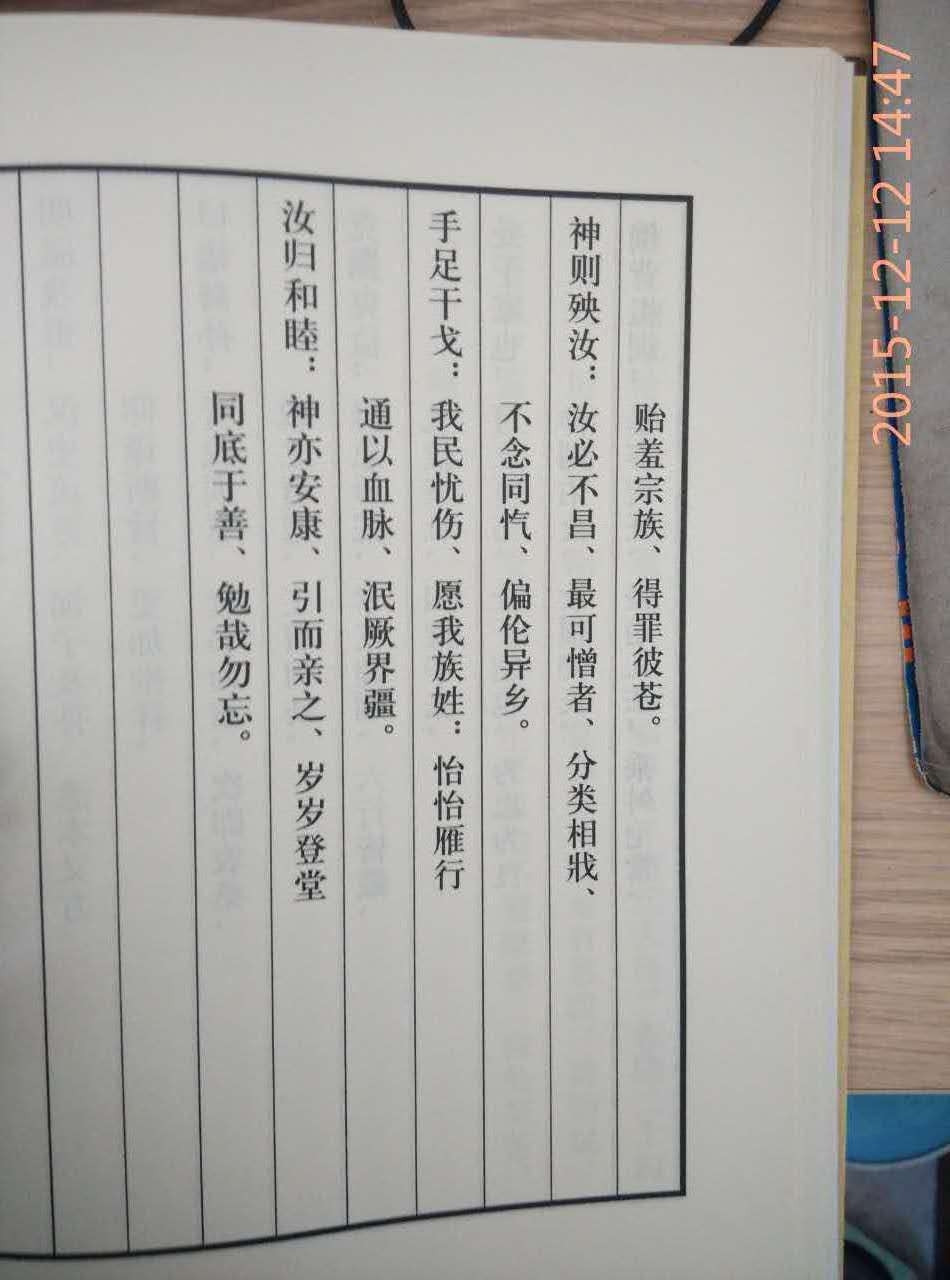 贻羞宗族、得罪彼苍。
神则殃汝：汝必不昌、最可憎者、分类相戕、
不念同忾、偏伦异乡。
手足干戈：我民忧伤、愿我族姓：怡怡雁行
通以血脉、泯厥界疆。
汝归和睦：神亦安康、引而亲之、岁岁登堂
同底于善、勉哉勿忘。
2015-12-12 14:47